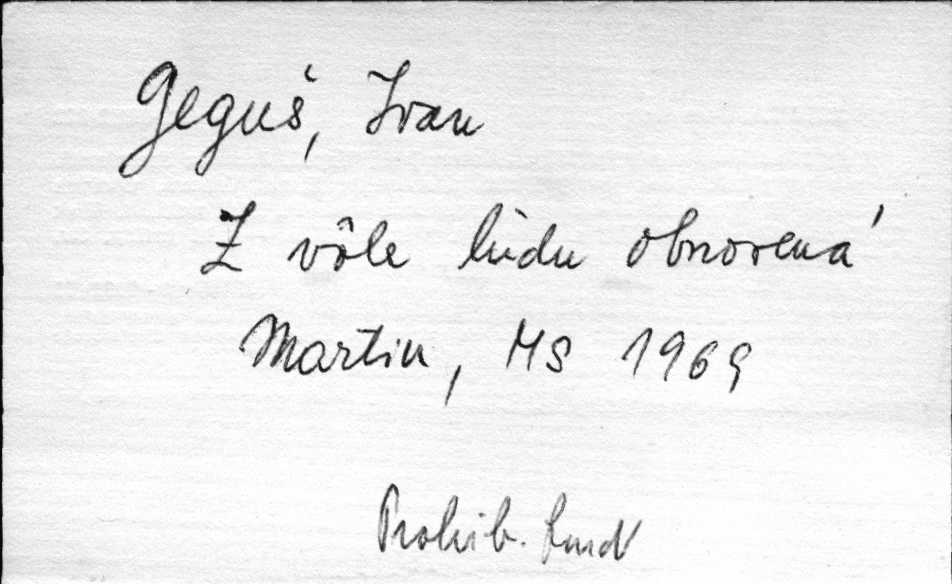 Geguš, Ivan
Z vôle ľudu obnovená
Martin, MS 1969
Prohib. fond